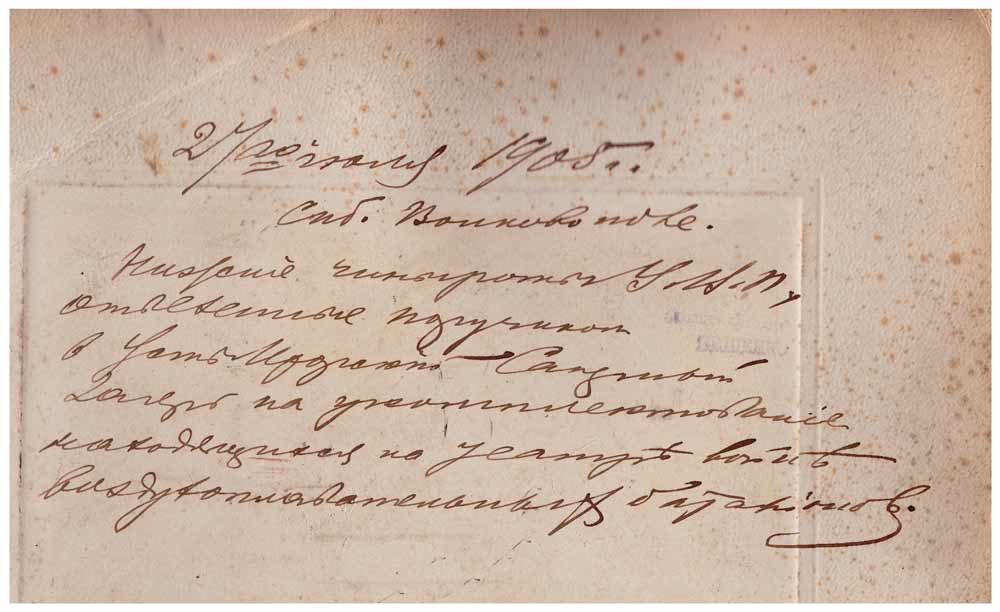 27го июля 1905 г.
Спб. Волково поле.
Нижнiе чины роты У.В.П.,
отвезенные поручиком
в Усть-Ижорскiй Сапёрный
Лагерь на укомплектованiе
находящихся на театрѣ войны
воздухоплавательных баталiонов.